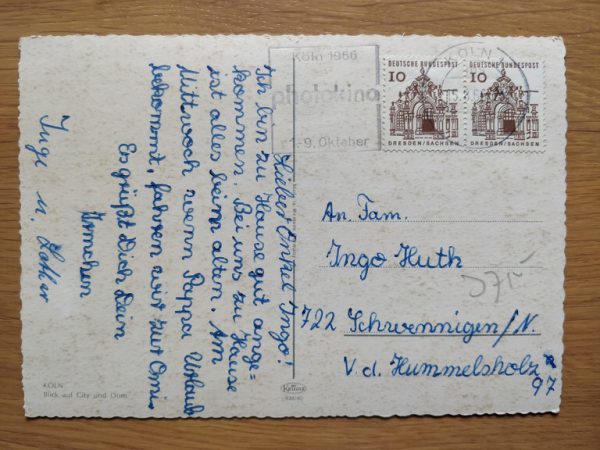 Lieber Onkel Ingo!
Ich bin zu Hause gut ange=
kommen. Bei uns zu Hause
ist alles beim alten. Am
Mittwoch wenn Pappa Urlaub
bekommt, fahren wir zur Omi.
Es grüßt Dich Dein
Ännchen
Inge u.
KÖLN
Blick auf City und Dom
Köln 1966
photokina
1-9. Oktober
KÖLN
DEUTSCHE BUNDESPOST
10
DRESDEN/SACHSEN
DEUTSCHE BUNDESPOST
10
DRESDEN/SACHSEN
An Fam.
Ingo Huth
722 Schwennigen/N.
V. d. Hummelsholz
97